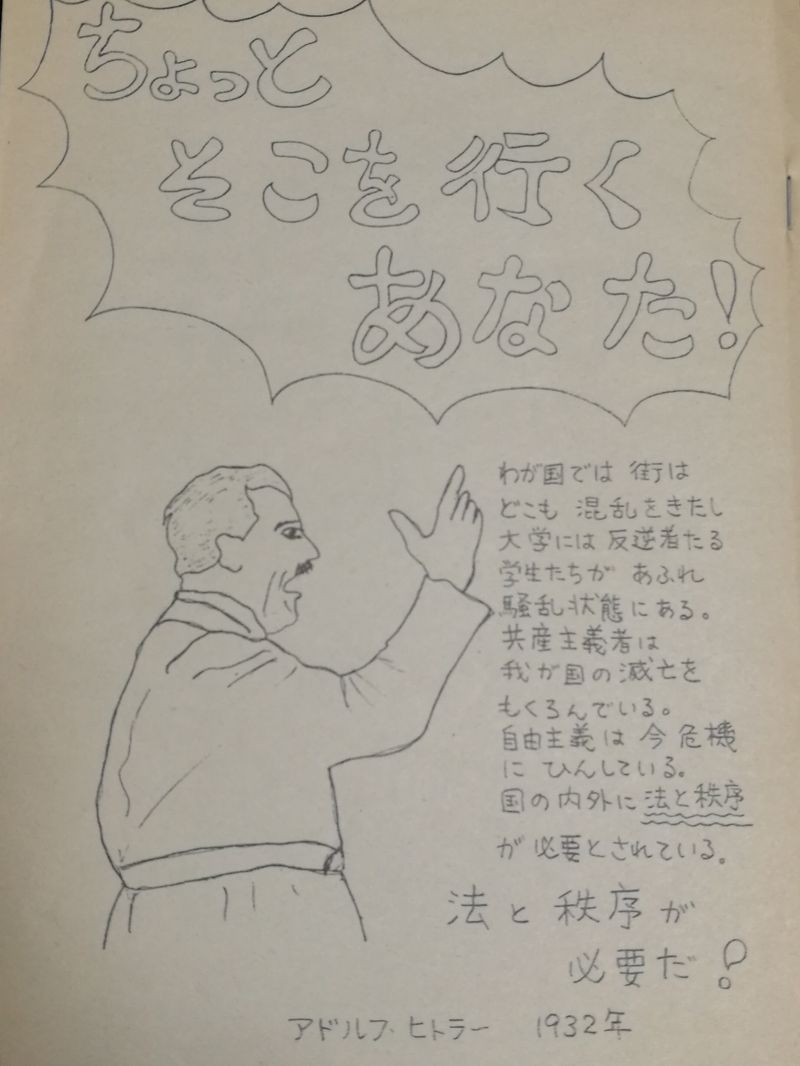 ちょっと
そこを行く
あなた!
わが国では 街は
どこも 混乱をきたし
大学には 反逆者たる
学生たちが あふれ
騒乱状態にある。
共産主義者は
我が国の滅亡を
もくろんでいる。
自由主義は 今 危機
に ひんしている。
国の内外に法と秩序
が 必要とされている。
法と秩序が
必要だ!
アドルフ・ヒトラー 1932年